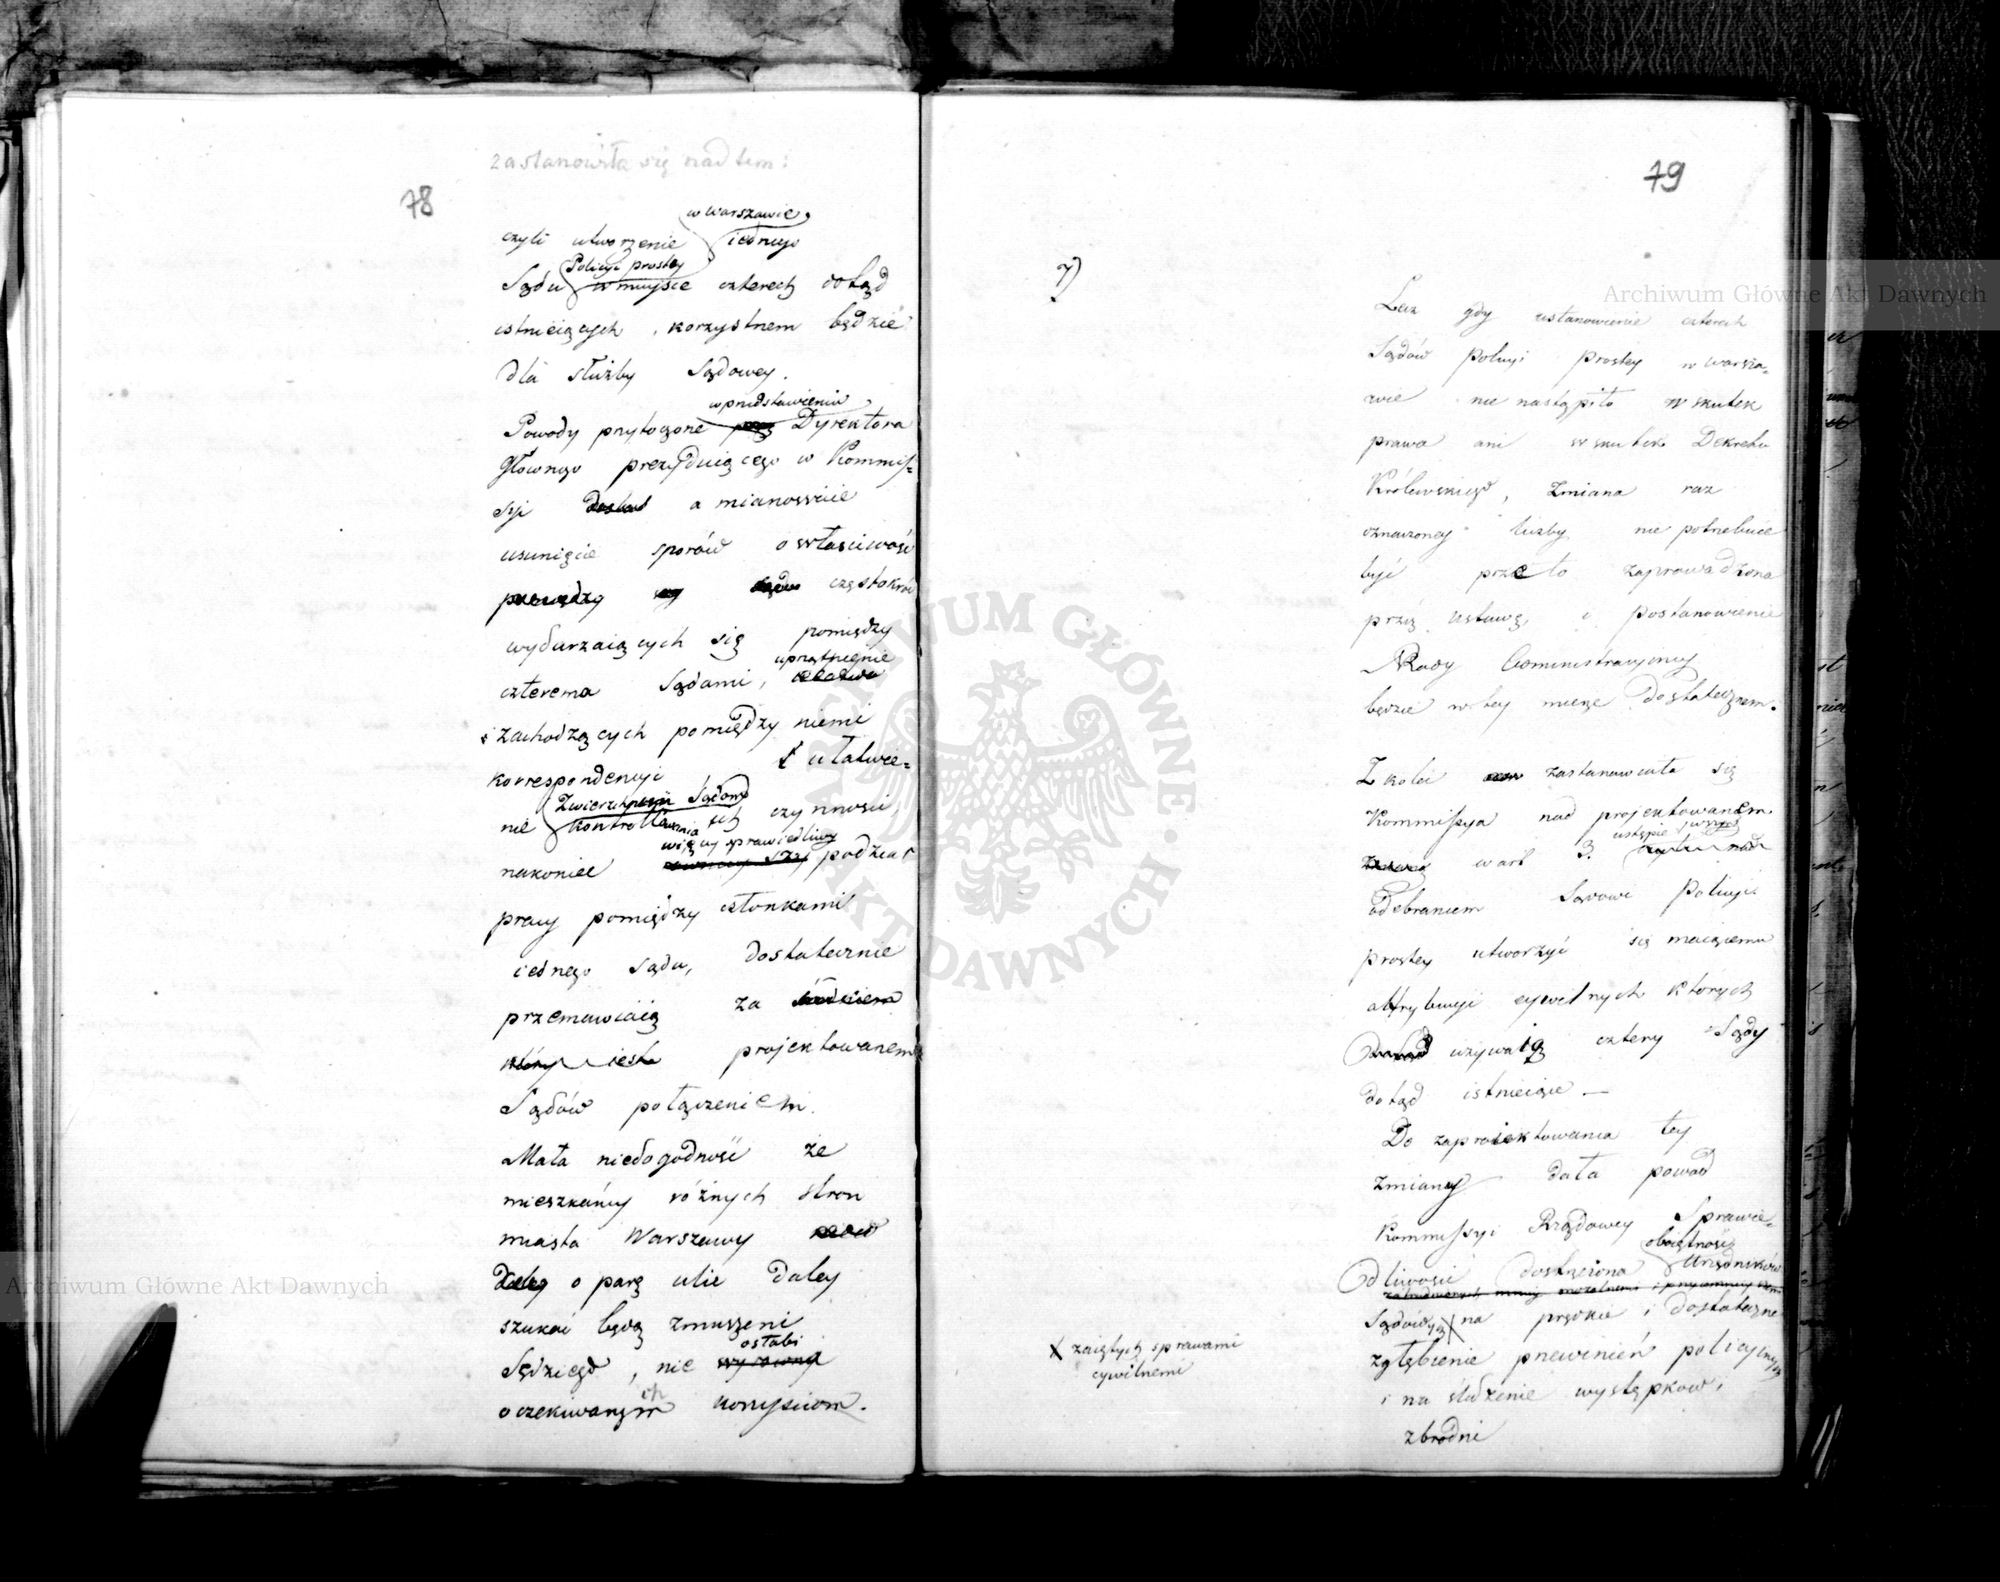 zastanowiła się nad tem:
78
w Warszawie
czyli utworzenie iednego
Policyi prostey
Sądu w mieysce czterech dotąd
istnieiących, korzystnem będzie
dla służby Sądowey.
w przedstawieniu
Powody przytoczone przez Dyrektora
Głównego prezyduiącego w Kommis-
syi a mianowicie
usunięcie sporów o właściwość
pomiędzy częstokroć
wydarzaiących się pomiędzy
uprzątnienie
czterema Sądami,
zachodzących pomiędzy niemi
korrespondencyi i ułatwie-
Zwierzchniey Sądom
nie kontrollowania ich czynności,
więcey sprawiedliwy
nakoniec podział
pracy pomiędzy członkami
iednego Sądu, dostatecznie
przemawiaią za
który iest projektowanem
Sądów połączeniem.
Mała niedogodność że
mieszkańcy różnych stron
miasta Warszawy
daley o parę ulic daley
szukać będą zmuszeni
osłabi
Sędziego, nie wyrówna
oczekiwanych korzyściom.
79
7)
Lecz gdy ustanowienie czterech
Sądów Policyi Prostey w Warsza-
wie nie nastąpiło w skutek
prawa ani w skutek Dekretu
Królewskiego, zmiana raz
oznaczoney liczby nie potrzebuie
być przeto zaprowadzona
przez ustawę, i postanowienie
Rady Administracyiney
będzie w tey mierze dostatecznem.
Z kolei zastanawiała się
Kommissya nad projektowanem
ustępie
w art 3. nad
odebraniem Sądowi Policyi
prostey utworzyć się maiącemu
attrybucyi cywilnych których
używaią cztery Sądy
dotąd istnieiące —
Do zaproiektowania tey
zmiany dała powód
Kommissyi Rządowey Sprawie-
obojętność
dliwości dostrzeżona Urzędników
Sądowych X na prędkie i dostateczne
X zaiętych sprawami
cywilnemi
zgłębienie przewinień policyinych
i na śledzenie występków i
zbrodni
Archiwum Główne Akt Dawnych
Archiwum Główne Akt Dawnych
ARCHIWUM GŁÓWNE AKT DAWNYCH